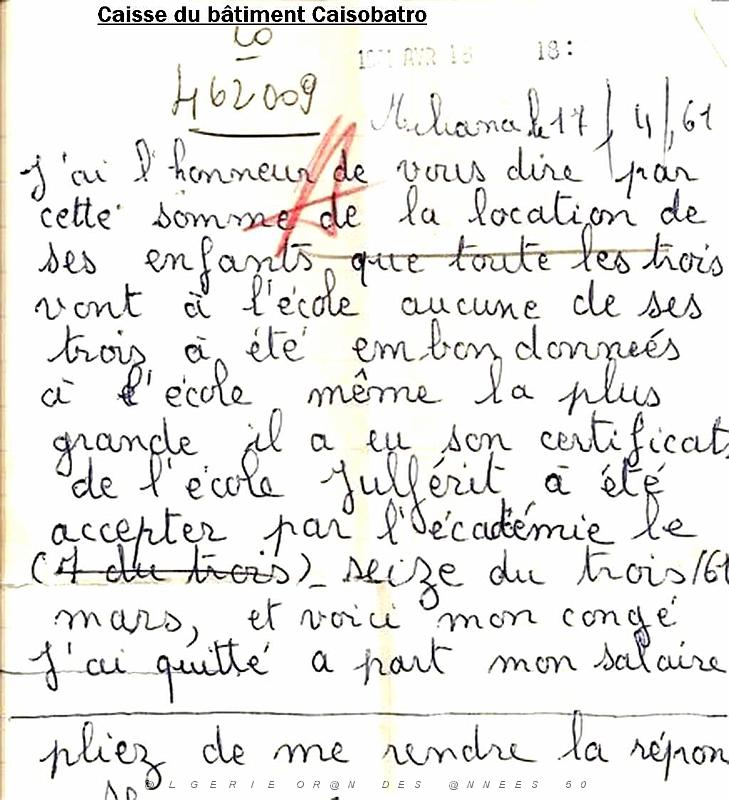 Caisse du bâtiment Caisobatro
10
AVR 18 18:
462009
A
le 17/4/61
J'ai l'honneur de vous dire par
cette somme de la location de
ses enfants que toute les trois
vont à l'école aucune de ses
trois à été embondonneés
à l'école même la plus
grande il a eu son certificat
de l'école Julférit à été
accepter par l'écadémie le
(7 du trois) seize du trois/61
mars, et voici mon congé
J'ai quitté a part mon salaire
pliez de me rendre la répon
se
@LGERIE OR@N DES @NNEES 50